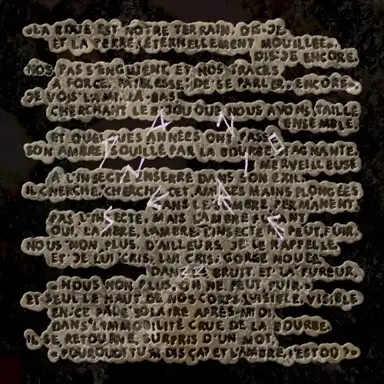 «LA BOUE EST NOTRE TERRAIN, DIS-JE,
ET LA TERRE, ÉTERNELLEMENT MOUILLÉE»,
DIS-JE ENCORE.
NOS PAS S'ENGLUENT, ET NOS TRACES
À FORCE, DE SE PARLER, ENCORE
JE VOIS L'AMI LÀ-BAS
CHERCHANT LE QUE NOUS AVONS TAILLÉ
ENSEMBLE
ET QUELQUES ANNÉES ONT PASSÉ
SON AMBRE, SOUILLÉ PAR LA BOURBE GAGNANTE
MERVEILLEUSE
À L'INSECTE ENSERRÉ DANS SON EXIL.
IL CHERCHE, CHERCHE CET AMI SES MAINS PLONGÉES
DANS L'AMBRE PERMANENT,
PAS L'INSECTE, MAIS L'AMBRE
OUI, L'AMBRE, L'AMBRE, L'INSECTE PEUT FUIR.
NOUS NON PLUS, D'AILLEURS, JE LE RAPPELLE
ET JE LUI CRIS, LUI CRIS, GORGE NOUÉE
DANS LE BRUIT ET LA FUREUR,
NOUS NON PLUS, ON NE PEUT FUIR,
ET SEUL LE HAUT DE NOS CORPS, VISIBLE, VISIBLE
EN CE PÂLE SOLAIRE APRÈS-MIDI
DANS L'IMMOBILITÉ CRUE DE LA BOURBE.
IL SE RETOURNE, SURPRIS D'UN MOT
«POURQUOI TU M'DIS ÇA? ET L'AMBRE, L'EST OÙ?»